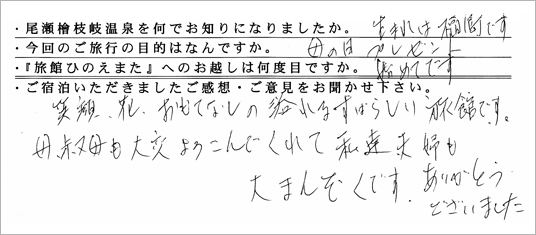 ・尾瀬檜枝岐温泉を何でお知りになりましたか。 生まれは福島です
・今回のご旅行の目的はなんですか。 母の日 プレゼント
・『旅館ひのえまた』へのお越しは何度目ですか。 始めてです
・ご宿泊いただきましたご感想・ご意見をお聞かせ下さい。
笑顔、花、おもてなしの溢れるすばらしい旅館です。
母叔母も大変よろこんでくれて私達夫婦も
大まんぞくです。ありがとう
ございました